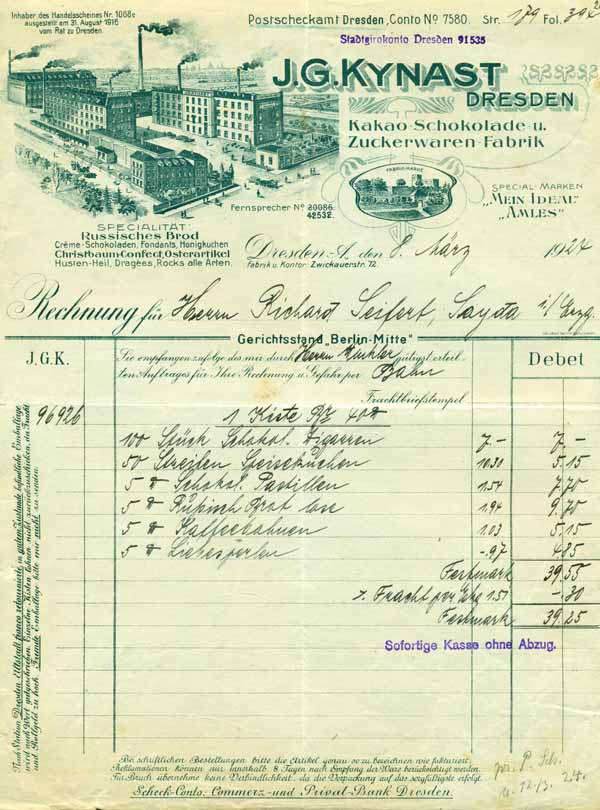 Inhaber des Handelsscheines Nr. 1068e
ausgestellt am 31. August 1916
vom Rat zu Dresden.
Postscheckamt Dresden, Conto No 7580. Str. 179 Fol. 394
Stadtgirokonto Dresden 91535
J.G.KYNAST
DRESDEN
Kakao-Schokolade-u.
Zuckerwaren-Fabrik
FABRIK-MARKE
SPECIAL-MARKEN
„MEIN IDEAL"
„AMLES"
Fernsprecher No 20086.
42532.
SPECIALITÄT:
Russisches Brod
Crême-Schokoladen, Fondants, Honigkuchen
Christbaum-Confect, Osterartikel
Husten-Heil, Dragées, Rocks alle Arten.
Dresden-A., den 8. März 1924
Fabrik u. Kontor: Zwickauerstr. 72.
Rechnung für Herrn Richard Seifert, Sayda i/Erzg.
Gerichtsstand „Berlin-Mitte"
J.G.K.
Sie empfangen zufolge des mir durch Herrn Küchler gütigst erteil-
ten Auftrages für Ihre Rechnung u. Gefahr per Bahn
Debet
Frachtbriefstempel
96926 1 Kiste
100 Stück Schokol. Zigarren 7 – 7 –
50 Streifen Speisekuchen 10.30 5.15
5 Schokol. Pastillen 1.54 7.70
5 Rußisch Brot lose 1.94 9.70
5 Kaffeebohnen 1.03 5.15
5 Liebesperlen -.97 4.85
Festmark 39.55
Fracht per 1.51 -.30
Festmark 39.25
Sofortige Kasse ohne Abzug.
Nach Station Dresden-Altstadt franco retournierte, in gutem Zustande befindliche Emballage
wird nach Wert gutgeschrieben. Einzelne Kisten lohnen nicht zurückzuschicken, da Fracht
und Rollgeld zu hoch. Fremde Emballage bitte mir nicht zu senden.
Bei schriftlichen Bestellungen bitte die Artikel genau so zu bezeichnen wie fakturiert.
Reklamationen können nur innerhalb 8 Tagen nach Empfang der Ware berücksichtigt werden.
Für Bruch übernehme keine Verbindlichkeit, da die Verpackung auf das sorgfältigste erfolgt.
Scheck-Conto: Commerz- und Privat-Bank Dresden.
12/3. 24.